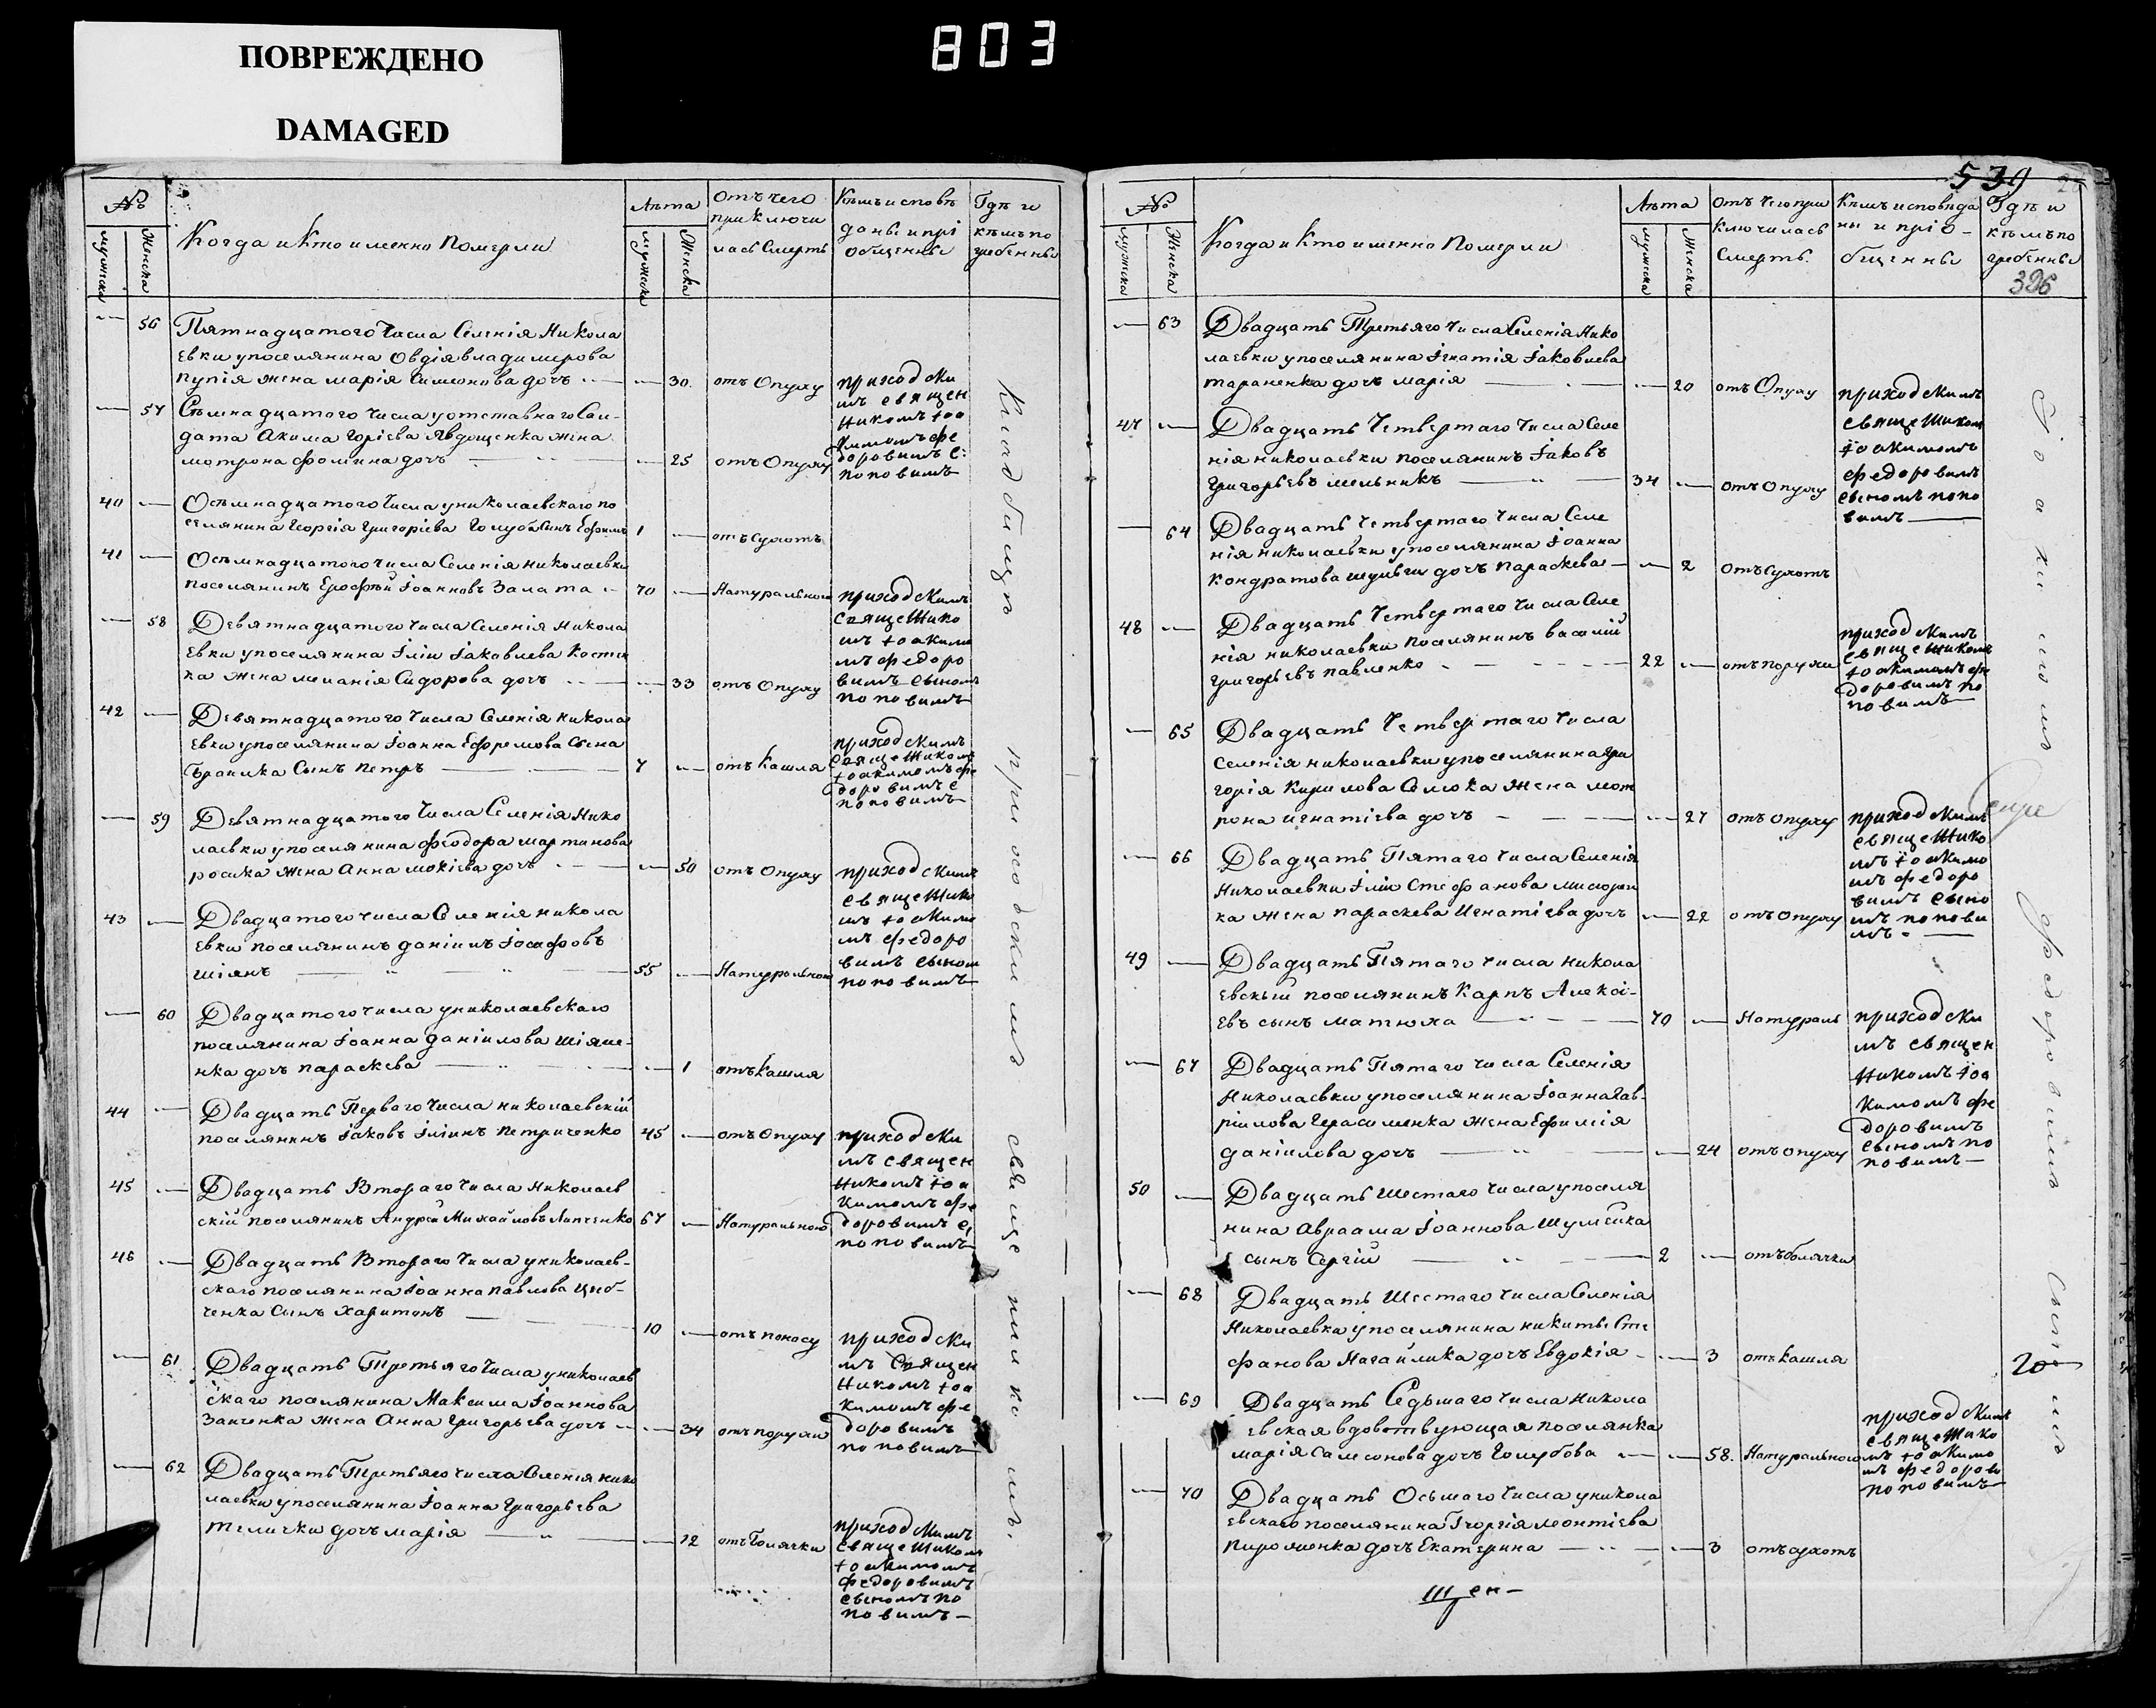 ПОВРЕЖДЕНО
DAMAGED
803
№
мужеска
Женска
Когда и Кто именно Померли
Лѣта
мужеска
Женска
Отъ чего
приключи
лась Смерть
Кѣмъ исповѣ
даны и прі
общенны
Гдѣ и
кѣмъ по
гребенны
56 Пятнадцатого Числа Селенія Никола
евки упоселянина Овдія владимерова
пупія жена марія Симеонова дочь 30. отъ Опуху
приходски
мъ священ
никомъ Іоа
кимомъ фе
доровимъ с:
поповимъ
57 Сѣмнадцатого Числа у отставнаго Сол-
дата Акима Горіева Явдощенка жена
мотрона фомина дочь 25 отъ Опуху
40 Осѣмнадцатого Числа униколаевскаго по
селянина Георгія Григоріева Голуба Сынъ Ефимъ 1 отъ Сухотъ
41 Осѣмнадцатого Числа Селенія николаевки
поселянинъ Ерофѣй Іоанновъ Залата 70 Натуральною
приходскимъ
священико
мъ Іоакимо
мъ федоро
вимъ сыномъ
поповимъ
58 Девятнадцатого Числа Селенія Никола
евки упоселянина Іліи Іаковлева Костен
ка жена меланія Сидорова дочь 33 отъ Опуху
42 Девятнадцатого Числа Селенія никола
евки упоселянина Іоанна Ефремова Сына
Браилка Сынъ Петръ 7 отъ Кашля
приходскимъ
священикомъ
Іоакимомъ фе
доровимъ с
поповимъ
59 Девятнадцатого Числа Селенія Нико
лаевки упоселянина феодора мартинова
росика жена Анна мокіева дочь 50 отъ Опуху
приходскимъ
священико
мъ Іоакимо
мъ федоро
вимъ сыном
поповимъ
43 Двадцатого числа Селенія никола
евки поселянинъ даніилъ Іосифовъ
шіянъ 55 Натуральною
60 Двадцатого числа униколаевскаго
поселянина Іоанна даніилова Шіяне-
нка дочь параскева 1 отъ кашля
44 Двадцать Перваго Числа николаевскій
поселянинъ Іаковъ Іліинъ Петриченко 45 отъ Опуху
приходски
мъ священ
никомъ Іоа
кимомъ фе
доровимъ с,
поповимъ
45 Двадцать Втораго Числа николаев
скій поселянинъ Андрей Михайловъ Липченко 67 Натуральною
46 Двадцать Втораго Числа униколаев-
скаго поселянина Іоанна павлова
ченка Сынъ Харитонъ 10 отъ поносу
приходски
мъ Священ
никомъ Іоа
кимомъ фе
доровимъ
поповимъ
61 Двадцать Третьяго Числа униколаев
скаго поселянина Максима Іоаннова
Заиченка жена Анна Григорьева дочь 34 отъ порухи
62 Двадцать Третьяго числа Селенія нико
лаевки упоселянина Іоанна Григорьева
телички дочь марія 12 отъ Болячки
приходскимъ
священикомъ
Іоакимомъ
федоровимъ
сыномъ по
повимъ
Кладбищѣ приходскимъ священникомъ.
539
326
№
мужеска
Женска
Когда и Кто именно Померли
Лѣта
мужеска
Женска
Отъ Чего при
Ключилась
Смерть.
Кѣмъ исповѣда
ны и пріо-
бщенны
Гдѣ и
кѣмъ по
гребенны
63 Двадцать Третьяго Числа Селенія Нико
лаевки упоселянина Ігнатія Іаковлева
тараненка дочь марія 20 отъ Опуху
приходскимъ
священиком
Іоакимомъ
федоровимъ
сыномъ попо
вимъ
47 Двадцать Четвертаго Числа Селе
нія николаевки поселянинъ Іаковъ
Григорьевъ мельникъ 34 отъ Опуху
64 Двадцать Четвертаго Числа Селе
нія николаевки упоселянина Іоанна
Кондратова шульги дочь Параскева 2 отъ Сухотъ
48 Двадцать Четвертаго Числа Селе
нія николаевки поселянинъ василій
Григорьевъ павленко 22 отъ порухи
приходскимъ
священикомъ
Іоакимомъ фе
доровимъ по
повимъ
65 Двадцать Четвертаго Числа
Селенія николаевки упоселянина гри
горія Кирилова Семока жена мот
рона игнатіева дочь 27 отъ опуху
приходскимъ
священико
мъ Іоакимо
мъ федоро
вимъ сыно
мъ попови
мъ
66 Двадцать Пятаго Числа Селенія
Николаевки Іліи Стефанова
ка жена параскева Игнатіева дочь 22 отъ опуху
49 Двадцать Пятаго Числа Никола
евскый поселянинъ Карпъ Алексі-
евъ сынъ матюха 70 Натураль
приходски
мъ священ
никомъ Іоа
кимомъ фе
доровимъ
сыномъ по
повимъ
67 Двадцать Пятаго числа Селенія
Николаевки упоселянина Іоанна Гав-
ріилова Герасименка жена Ефимія
даніилова дочь 24 отъ опуху
50 Двадцать шестаго Числа упоселя
нина Авраама Іоаннова Шумейка
сынъ Сергій 2 отъ болячки
68 Двадцать Шестаго Числа Селенія
Николаевка упоселянина никиты Сте
фанова Нагайлика дочь Евдокія 3 отъ кашля
69 Двадцать Седьмаго Числа Никола
евская вдовствующая поселянка
марія Самсонова дочь Голубова 58. Натуральною
приходскимъ
священико
мъ Іоакимо
мъ федоров
поповимъ
70 Двадцать Осьмаго Числа уникола
евскаго поселянина Георгія леонтіева
пироженка дочь Екатерина 3 отъ сухотъ
Іоакимомъ федоровимъ сыномъ
20